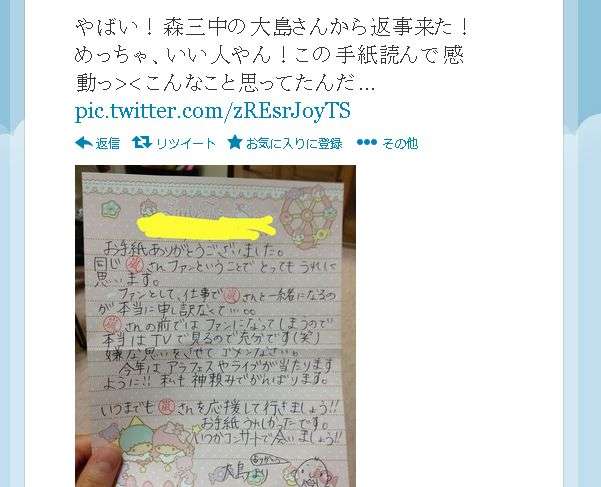 やばい！森三中の大島さんから返事来た！
めっちゃ、いい人やん！この手紙読んで感
動っ><こんなこと思ってたんだ…
pic.twitter.com/zREsrJoyTS
返信 リツイート お気に入りに登録 その他
お手紙ありがとうございました。
同じ嵐さんファンということでとってもうれしく
思います。
ファンとして、仕事で嵐さんと一緒になるの
が本当に申し訳なくて…。。
嵐さんの前ではファンになってしまうので
本当はTVで見るので充分です(笑)
嫌な思いをさせてゴメンなさい。
今年はアラフェスやライブが当たります
ように!! 私も神頼みでがんばります。
いつまでも嵐さんを応援して行きましょう!!
お手紙うれしかったです。
いつかコンサートで会いましょう!!
大島より